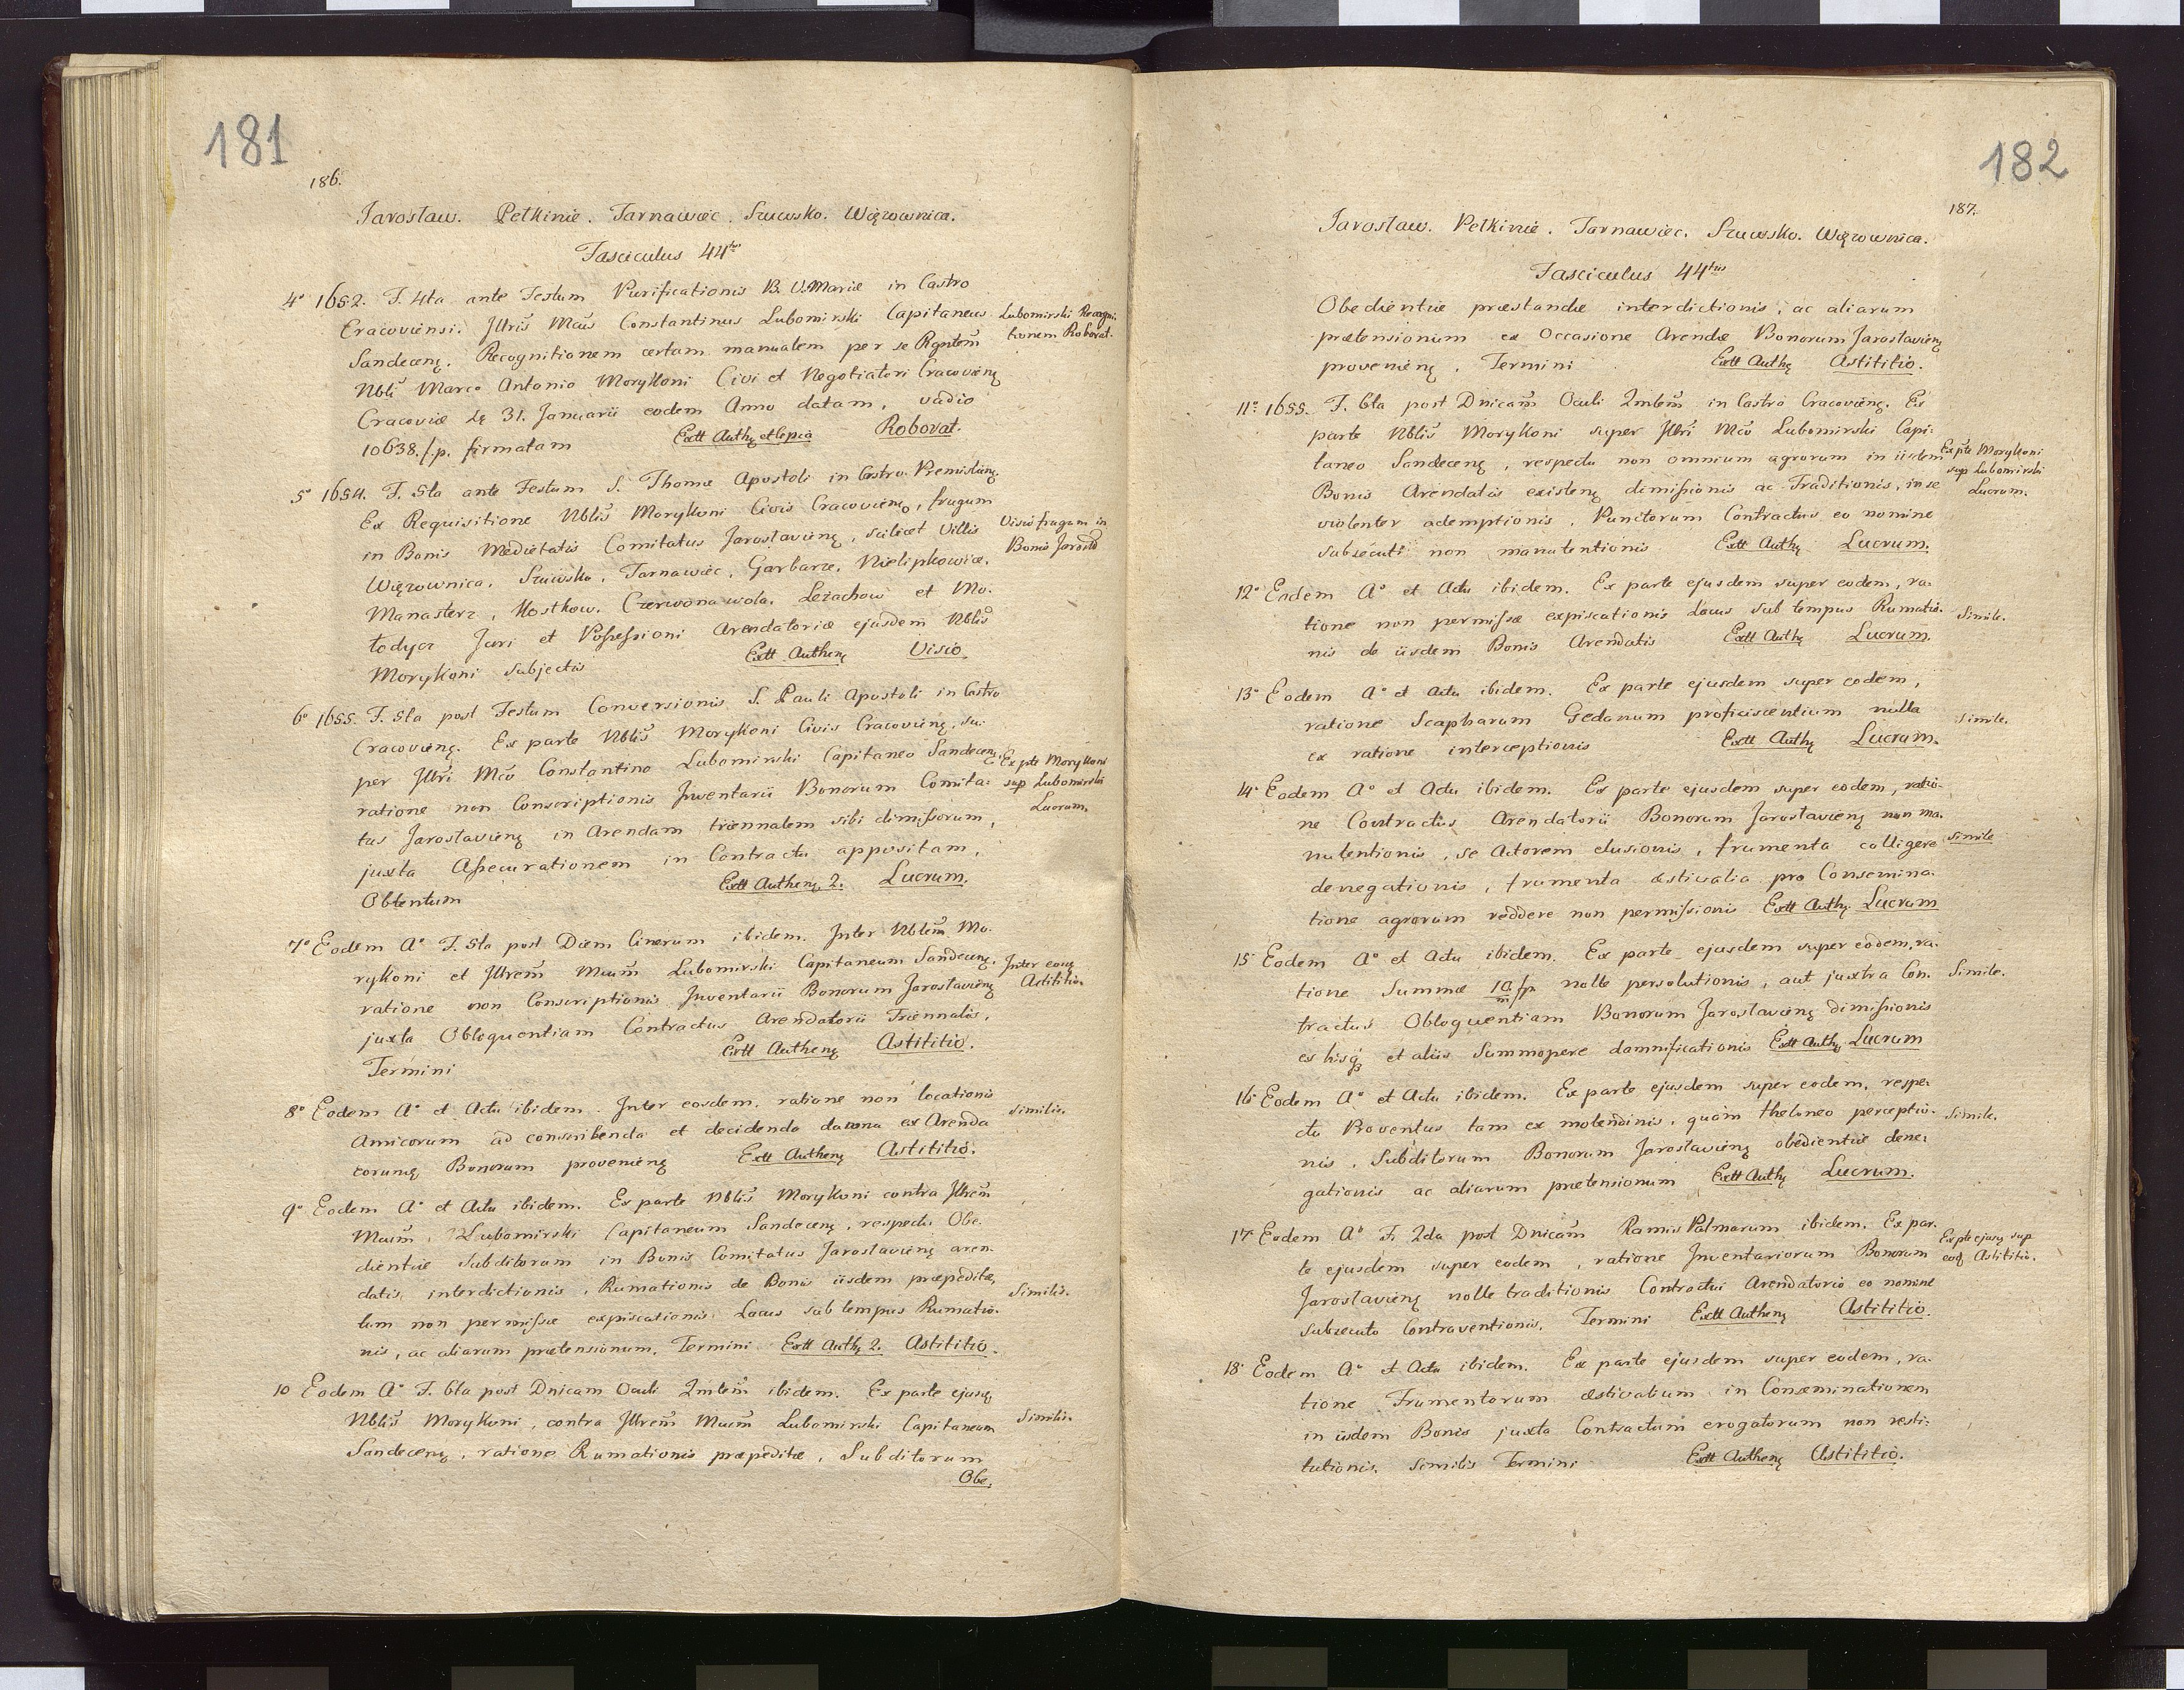 181
186.
Jarosław. Pełkinie. Tarnawiec. Szuwsko. Więzownica.
Fasciculus 44tus
4o 1652. F. 4ta ante Festum Purificationis B. V. Mariæ in Castro
Cracoviensi. Jllris Mcus Constantinus Lubomirski Capitaneus
Lubomirski Recogni-
tionem Roborat.
Sandecenς. Recognitionem certam manualem per se Rgntem
Nbli Marco Antonio Morykoni Civi et Negotiatori Cracovienς
Cracoviæ 31. Januarii eodem Anno datam, vadio
10638. f. p. firmatam Extt Authς et copia Roborat.
5o 1654. F. 5ta ante Festum S. Thomæ Apostoli in Castro Premislienς.
Ex Requisitione Nblis Morykoni Civis Cracovienς, frugum
in Bonis Medietatis Comitatus Jaroslavienς, scilicet Villis
Visio frugum in
Bonis Jarosld
Więzownica, Szuwsko, Tarnawiec, Garbarze, Nielipkowice,
Manasterz, Mostkow, Czerwona wola, Leżachow et Mo-
łodycz Juri et Possessioni Arendatoriæ ejusdem Nblis
Morykoni subjectis Extt Authenς Visio
6o 1655. F. 5ta post Festum Conversionis S. Pauli Apostoli in Castro
Cracovienς. Ex parte Nblis Morykoni Civis Cracovienς, su-
per Jllri Mco Constantino Lubomirski Capitaneo Sandecenς
Ex pte Morykoni
sup Lubomirski
Lucrum.
ratione non Conscriptionis Jnventarii Bonorum Comita-
tus Jaroslavienς in Arendam triennalem sibi dimissorum,
juxta Assecurationem in Contractu appositam,
Obtentum Extt Authenς 2. Lucrum.
7o Eodem Ao F. 5ta post Diem Cinerum ibidem. Jnter Nblem Mo-
rykoni et Jllrem Mcum Lubomirski Capitaneum Sandecenς,
Jnter eosς
Astititio.
ratione non Conscriptionis Jnventarii Bonorum Jaroslavienς
juxta Obloquentiam Contractus Arendatorii Triennalis,
Termini Extt Authenς Astititio.
8o Eodem Ao et Actu ibidem. Jnter eosdem, ratione non locationis
Similis.
Amicorum ad conscribenda et decidenda damna ex Arenda
eorumς Bonorum provenienς Extt Authenς Astititio.
9o Eodem Ao et Actu ibidem. Ex parte Nblis Morykoni contra Jllrem
Mcum Lubomirski Capitaneum Sandecenς, respectu Obe-
dientiæ Subditorum in Bonis Comitatus Jaroslavienς aren-
datis, interdictionis, Rumationis de Bonis iisdem præpeditæ,
Similis.
tum non permissæ expiscationis Lacus sub tempus Rumatio-
nis, ac aliarum prætensionum, Termini Extt Authς 2. Astititio.
10 Eodem Ao F. 6ta post Dnicam Oculi Qmlem ibidem. Ex parte ejusς
Nblis Morykoni, contra Jllrem Mcum Lubomirski Capitaneum
Similis.
Sandecenς, ratione Rumationis præpeditæ, Subditorum
Obe,
182
187.
Jarosław. Pełkinie. Tarnawiec. Szuwsko. Więzownica.
Fasciculus 44tus
Obedientiæ præstandæ interdictionis, ac aliarum
prætensionum ex Occasione Arendæ Bonorum Jaroslavienς
provenienς, Termini Extt Authς Astititio.
11o 1655. F. 6ta post Dnicam Oculi Qmlem in Castro Cracovienς. Ex
parte Nblis Morykoni super Jllri Mco Lubomirski Capi-
taneo Sandecenς, respectu non omnium agrorum in iisdem
Ex pte Morykoni
sup Lubomirski
Lucrum.
Bonis Arendatis existenς dimissionis ac Traditionis, in se
violenter ademptionis, Punctorum Contractus eo nomine
subsecuti non manutentionis Extt Authς Lucrum.
12o Eodem Ao et Actu ibidem. Ex parte ejusdem super eodem, ra-
tione non permissæ expiscationis Lacus sub tempus Rumatio-
Simile.
nis de iisdem Bonis Arendatis Extt Authς Lucrum.
13o Eodem Ao et Actu ibidem. Ex parte ejusdem super eodem,
ratione Scapharum Gedanum proficiscentium nulla
Simile.
ex ratione interceptionis Extt Authς Lucrum.
14o Eodem Ao et Actu ibidem. Ex parte ejusdem super eodem, ratio-
ne Contractus Arendatorii Bonorum Jaroslavienς non ma-
nutentionis, se Actorem elusionis, frumenta colligere
Simile
denegationis, frumenta æstivalia pro Consemina-
tione agrorum reddere non permissionis Extt Authς Lucrum
15 Eodem Ao et Actu ibidem. Ex parte ejusdem super eodem, ra-
tione Summæ 10/m fp nolle persolutionis, aut juxta Con-
Simile.
tractus Obloquentiam Bonorum Jaroslavienς dimissionis
ex hisqȝ et aliis Summopere damnificationis Extt Authς Lucrum
16 Eodem Ao et Actu ibidem. Ex parte ejusdem super eodem, respe-
ctu Proventus tam ex molendinis, quam theloneo perceptio-
Simile.
nis, Subditorum Bonorum Jaroslavienς obedientiæ dene-
gationis ac aliarum prætensionum Extt Authς Lucrum.
17 Eodem Ao F. 2da post Dnicam Ramis Palmarum ibidem. Ex par-
te ejusdem super eodem, ratione Jnventariorum Bonorum
Ex pte ejusς sup
eodς Astititio.
Jaroslavienς nolle traditionis Contractui Arendatorio eo nomine
subsecuto Contraventionis, Termini Extt Authenς Astititio.
18 Eodem Ao et Actu ibidem. Ex parte ejusdem super eodem, ra-
tione Frumentorum æstivalium in Conseminationem
in iisdem Bonis juxta Contractum erogatorum non resti-
tutionis. Similis Termini Extt Authenς Astititio.